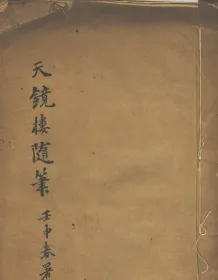 天鏡樓隨筆
壬申春署